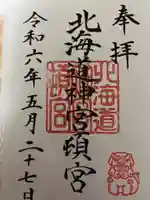 奉拝
北海道神宮頓宮
北海道
頓宮
令和六年五月二十七日